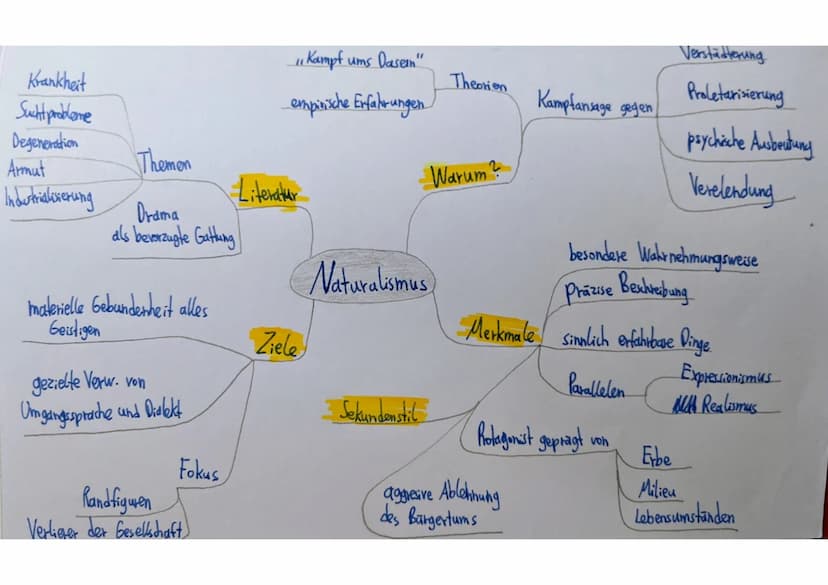 Naturalismus
Literatur
Themen
Krankheit
Suchtprobleme
Degeneration
Armut
Industrialisierung
Drama
als bevorzugte Gattung
Warum?
Theorien
„Kampf ums Dasein"
empirische Erfahrungen
Kampfansage gegen
Verstädterung
Proletarisierung
psychische Ausbeutung
Verelendung
Ziele
materielle Gebundenheit alles
Geistigen
gezielte Verw. von
Umgangssprache und Dialekt
Fokus
Randfiguren
Verlierer der Gesellschaft
Merkmale
besondere Wahrnehmungsweise
präzise Beschreibung
sinnlich erfahrbare Dinge
Parallelen
Expressionismus
Realismus
Protagonist geprägt von
Erbe
Milieu
Lebensumständen
Sekundenstil
aggresive Ablehnung
des Bürgertums